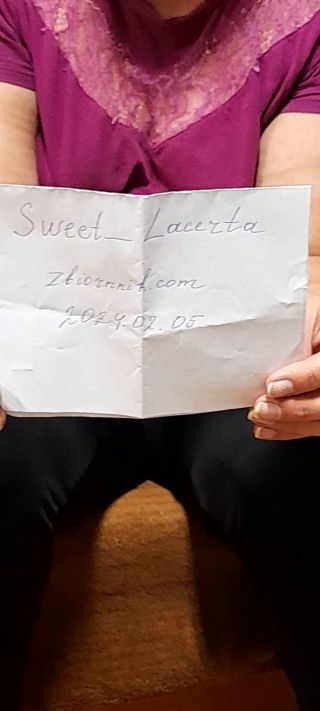 Sweet_Lacerta
zbiornnik.com
2024.02.05